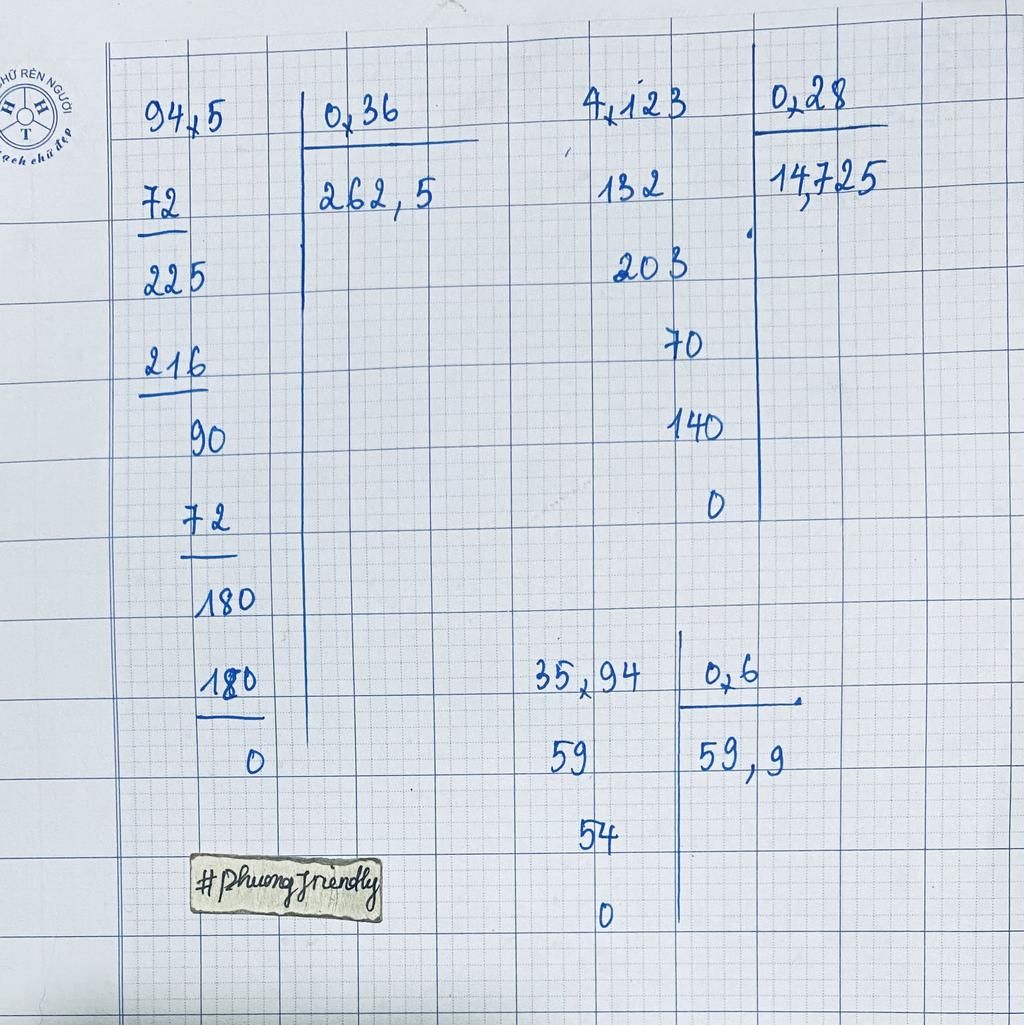 CHỮ RÈN NGƯỜI
H H
T
ạch chữ đẹp
94,5 0,36
72 262,5
225
216
90
72
180
180
0
4,123 0,28
132 14,725
203
70
140
0
35,94 0,6
59 59,9
54
0
#phuongfriendly